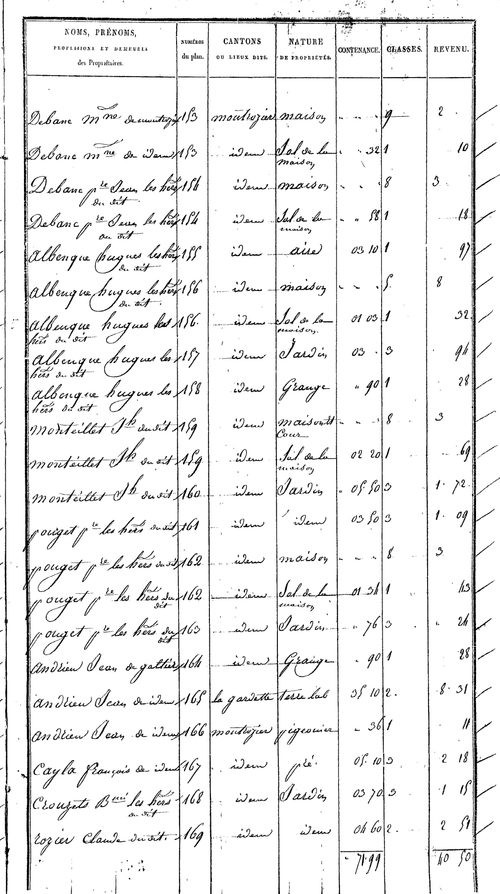 NOMS, PRÉNOMS, PROFESSIONS ET DEMEURES des Propriétaires. | NUMÉROS du plan. | CANTONS OU LIEUX DITS. | NATURE DE PROPRIÉTÉS. | CONTENANCE. | CLASSES. | REVENU.
Debanc de montrozier 153 montrozier maison " " " 9 2 "
Debanc de idem 153 idem Sol de la maison " " 32 1 " 10
Debanc pre Jean les hers du dit 154 idem maison " " " 8 3 "
Debanc pre Jean les hers du dit 154 idem Sol de la maison " " 58 1 " 18
albenque hugues les hers du dit 155 idem aire 03 10 1 " 97
albenque hugues les hers du dit 156 idem maison " " " 5 8 "
albenque hugues les hers du dit 156 idem Sol de la maison 01 03 1 " 32
albenque hugues les hers du dit 157 idem Jardin 03 " 3 " 94
albenque hugues les hers du dit 158 idem Grange " 90 1 " 28
monteillet Jh du dit 159 idem maison et Cour " " " 8 3 "
monteillet Jh du dit 159 idem Sol de la maison 02 20 1 " 69
monteillet Jh du dit 160 idem Jardin 05 50 3 1 72
pouget pre les hers du dit 161 idem idem 03 50 3 1 09
pouget pre les hers du dit 162 idem maison " " " 8 3 "
pouget pre les hers du dit 162 idem Sol de la maison 01 34 1 " 43
pouget pre les hers du dit 163 idem Jardin " 76 3 " 24
andrieu Jean de 164 idem Grange " 90 1 " 28
andrieu Jean de idem 165 la gardette terre lab 35 10 2 8 31
andrieu Jean de idem 166 montrozier pigeonier " 36 1 " 11
Cayla françois de idem 167 idem pré 05 10 3 2 18
Crouzets les hers du dit 168 idem Jardin 03 70 3 1 15
rozier Claude du dit 169 idem idem 04 60 2 2 51
" 71 99 40 50